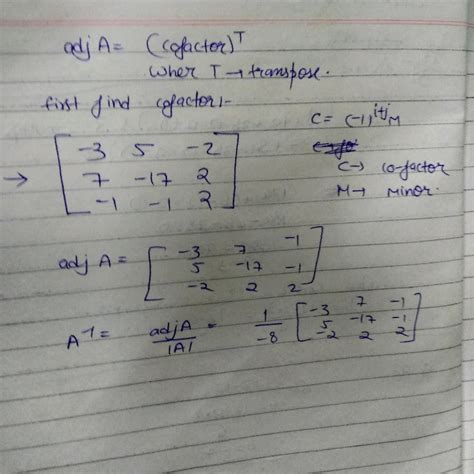 adj A = (cofactor)^T
wher T → transpose.
first find cofactor:-
C = (-1)^i+j M
C → co-factor
M → minor.
→ [ -3 5 -2
7 -17 2
-1 -1 2 ]
adj A = [ -3 7 -1
5 -17 -1
-2 2 2 ]
A^-1 = adjA / |A| = 1 / -8 [ -3 7 -1
5 -17 -1
-2 2 2 ]